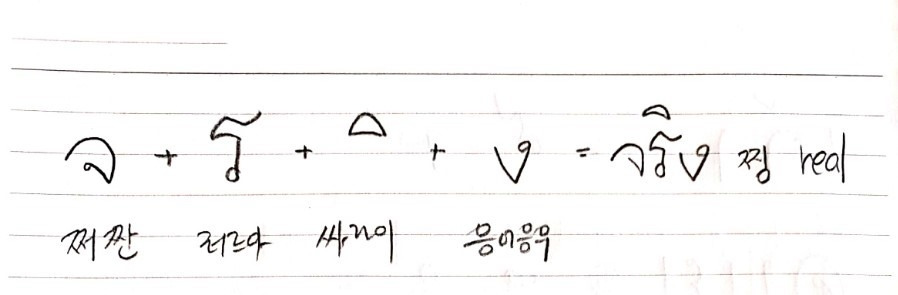 จ + ร + ิ + ง = จริง 찡 real
쩌짠 러르아 싸라이 응어응우